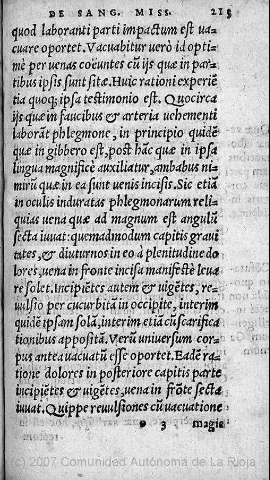 DE SANG. MISS. 215
quod laboranti parti impactum est ua-
cuare oportet. Vacuabitur uerò id opti-
mè per uenas coëuntes cũ ijs quæ in par-
tibus ipsis sunt sitæ. Huic rationi experiẽ
tia quoq; ipsa testimonio est. Quocirca
ijs quæ in faucibus & arteria uehementi
laborãt phlegmone, in principio quidẽ
quæ in gibbero est, post hãc quæ in ipsa
lingua magnificè auxiliatur, ambabus ni-
mirũ quæ in ea sunt uenis incisis. Sic etiã
in oculis induratas phlegmonarum reli-
quias uena quæ ad magnum est angulũ
secta iuuat: quemadmodum capitis graui
tates, & diuturnos in eo à plenitudine do
lores, uena in fronte incisa manifestè leua
re solet. Incipiẽtes autem & uigẽtes, re-
uulsio per cucurbitã in occipite, interim
quidẽ ipsam solã, interim etiã cũ scarifica
tionibus appositã. Verũ uniuersum cor-
pus antea uacuatũ esse oportet. Eadẽ ra-
tione dolores in posteriore capitis parte
incipiẽtes & uigẽtes, uena in frõte secta
iuuat. Quippe reuulsiones cũ uacuatione
3 magis
(c) 2007 Comunidad Autónoma de La Rioja